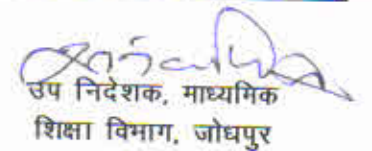 उप निदेशक, माध्यमिक
शिक्षा विभाग, जोधपुर